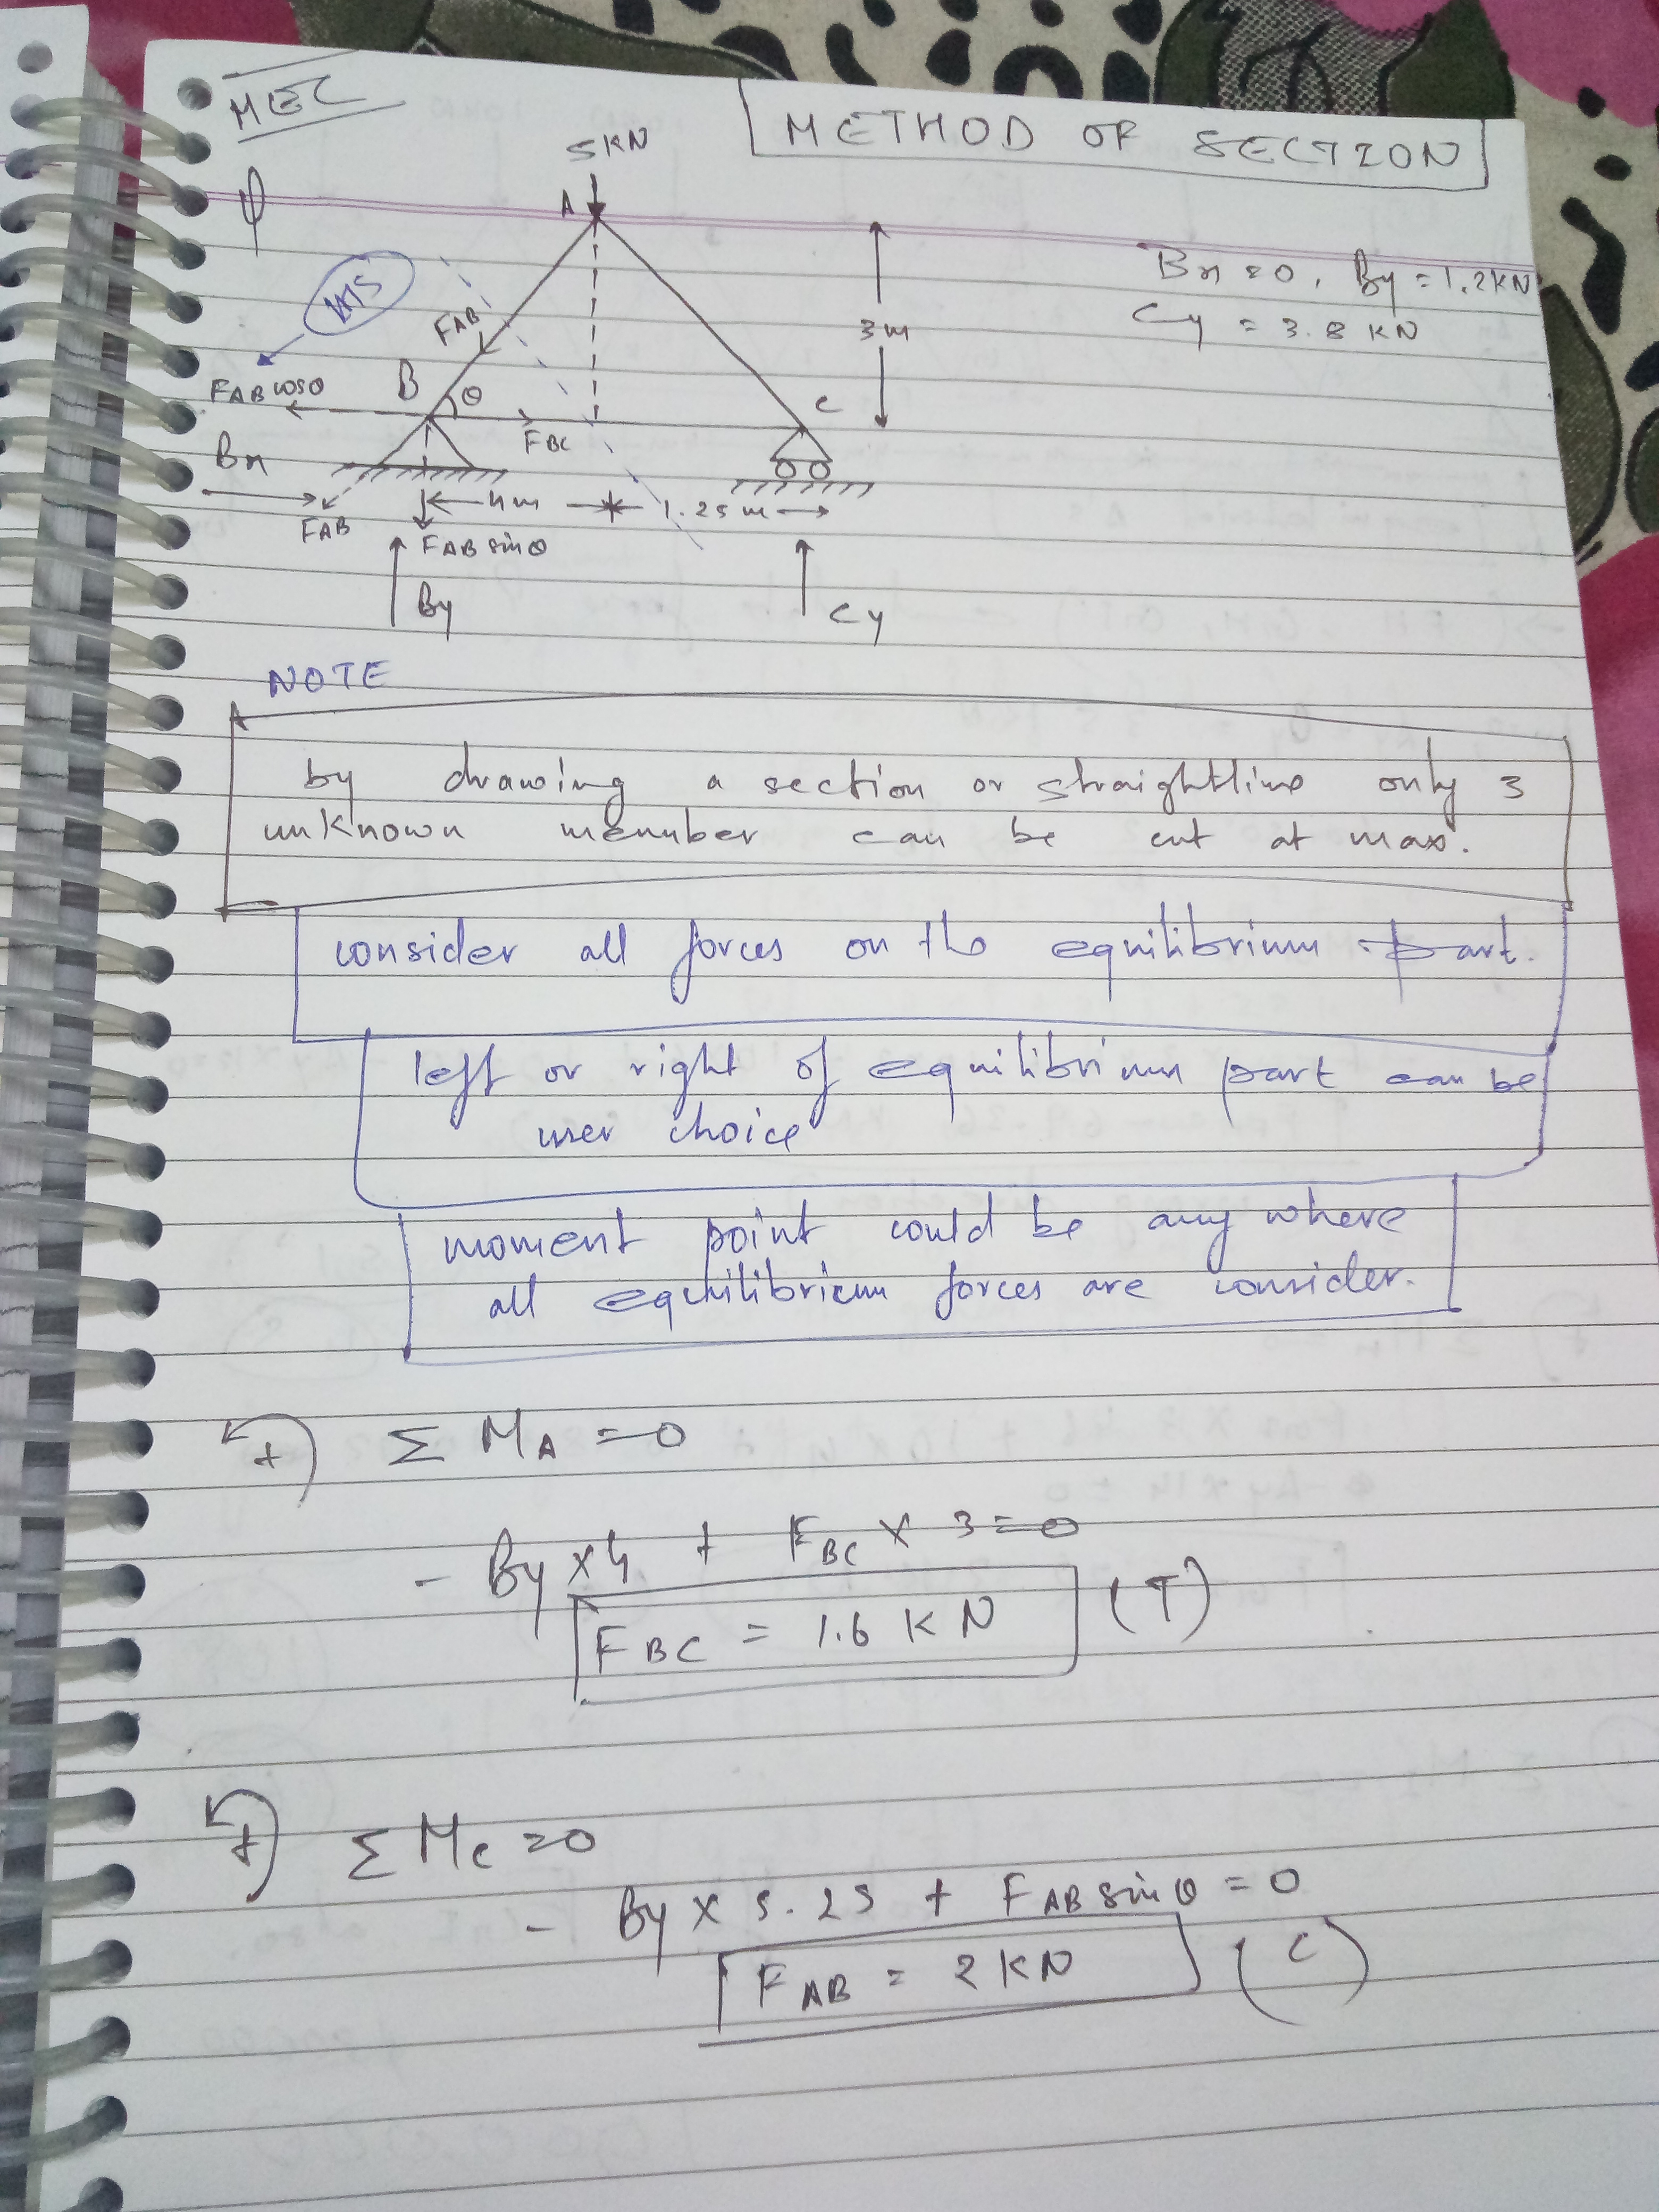 MEC
METHOD OF SECTION
5KN
A
Bx = 0, By = 1.2KN
Cy = 3.8 KN
FAB
3m
FAB cosθ
B
θ
C
FBC
Bx
4m
1.25m
FAB
FAB sinθ
By
Cy
NOTE
by drawing a section or straightline only 3
unknown member can be cut at max.
consider all forces on the equilibrium part.
left or right of equilibrium part can be
user choice
moment point could be any where
all equilibrium forces are consider.
+ Σ MA = 0
- By x 4 + FBC x 3 = 0
FBC = 1.6 KN (T)
+ Σ Mc = 0
- By x 5.25 + FAB sinθ = 0
FAB = 2 KN (C)